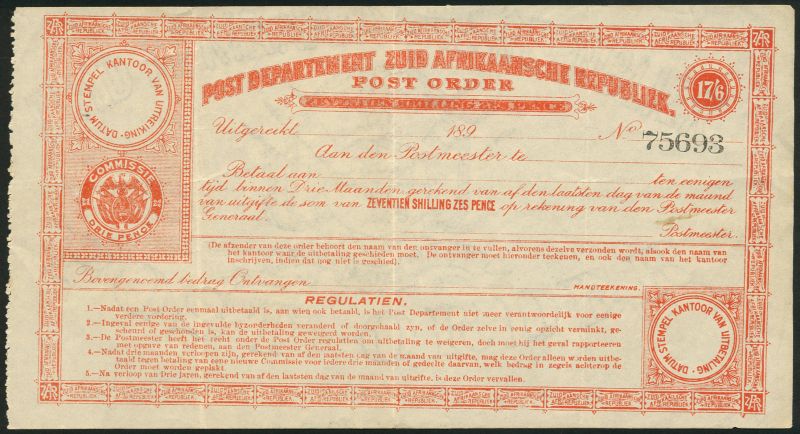 ZAR
ZUID AFRIKAANSCHE REPUBLIEK
ZAR
POST DEPARTEMENT ZUID AFRIKAANSCHE REPUBLIEK.
POST ORDER
ZEVENTIEN SHILLING ZES PENCE
17/6
DATUM STEMPEL KANTOOR VAN UITREIKING
COMMISSIE
DRIE PENCE
Uitgereikt 189 No 75693
Aan den Postmeester te
Betaal aan ten eenigen
tijd binnen Drie Maanden, gerekend van af den laatsten dag van de maand
van uitgifte de som van ZEVENTIEN SHILLING ZES PENCE op rekening van den Postmeester
Generaal.
Postmeester.
(De afzender van deze order behoort den naam van den ontvanger in te vullen, alvorens dezelve verzonden wordt, alsook den naam van
het kantoor waar de uitbetaling geschieden moet. De ontvanger moet hieronder teekenen, en ook den naam van het kantoor
inschrijven, indien dat nog niet is geschied).
Bovengenoemd bedrag Ontvangen
HANDTEEKENING.
REGULATIEN.
1.—Nadat een Post Order eenmaal uitbetaald is, aan wien ook betaald, is het Post Departement niet meer verantwoordelijk voor eenige
verdere vordering.
2.—Ingeval eenige van de ingevulde byzonderheden veranderd of doorgehaald zyn, of de Order zelve in eenig opzicht verminkt, ge-
scheurd of geschonden is, kan de uitbetaling geweigerd worden.
3.—De Postmeester heeft het recht onder de Post Order regulatien om uitbetaling te weigeren, doch moet hij het geval rapporteeren
met opgave van redenen, aan den Postmeester Generaal.
4.—Nadat drie maanden verloopen zijn, gerekend van af den laatsten dag van de maand van uitgifte, mag deze Order alleen worden uitbe-
taald tegen betaling van eene nieuwe Commissie voor iedere drie maanden of gedeelte daarvan, welk bedrag in zegels achterop de
Order moet worden geplakt
5.—Na verloop van Drie Jaren, gerekend van af den laatsten dag van de maand van uitgifte, is deze Order vervallen.
DATUM STEMPEL KANTOOR VAN UITBETALING
ZAR
ZUID AFRIKAANSCHE REPUBLIEK
ZAR